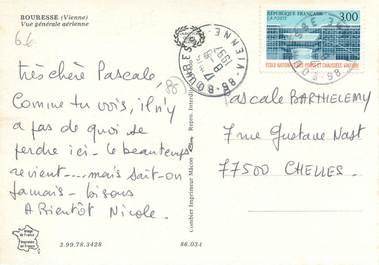 BOURESSE (Vienne)
Vue générale aérienne
RÉPUBLIQUE FRANÇAISE
LA POSTE
3,00
ÉCOLE NATIONALE DES PONTS ET CHAUSSÉES
86 BOURESSE
VIENNE
17
8
1997
86
très chère Pascale
Comme tu vois, il n'y
a pas de quoi se
perdre ici - le beau temps
revient.... mais sait-on
jamais - bisous
A Bientôt Nicole.
Pascale BARTHELEMY
7 rue Gustave Nast
77500 CHELLES
Combier Imprimeur Mâcon
Repro. Interdite
2.99.78.3428
86.034